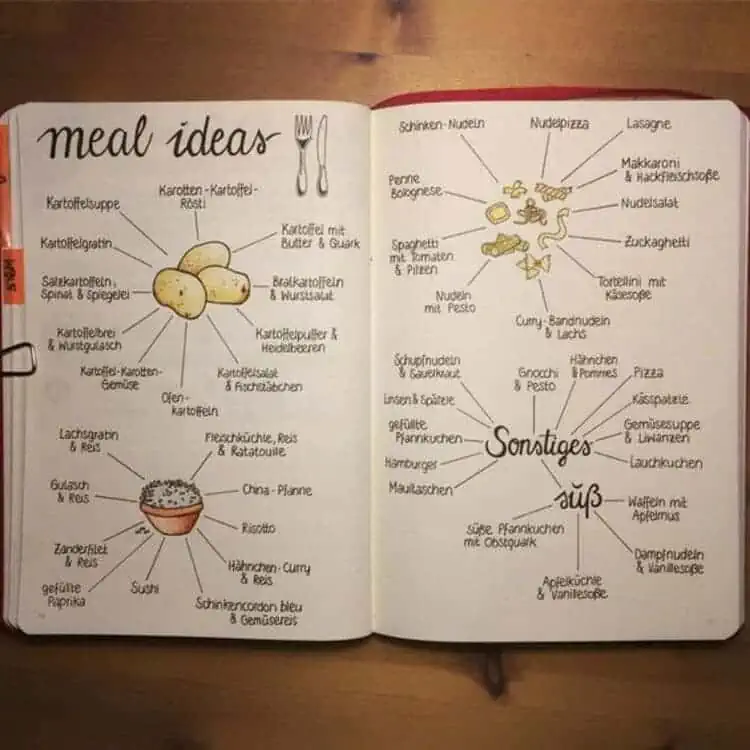 meal ideas
Kartoffelsuppe
Karotten-Kartoffel-
Rösti
Kartoffel mit
Butter & Quark
Kartoffelgratin
Salzkartoffeln,
Spinat & Spiegelei
Bratkartoffeln
& Wurstsalat
Kartoffelbrei
& Wurstgulasch
Kartoffelpuffer &
Heidelbeeren
Kartoffel-Karotten-
Gemüse
Kartoffelsalat
& Fischstäbchen
Ofen-
kartoffeln
Lachsgratin
& Reis
Fleischküchle, Reis
& Ratatouille
Gulasch
& Reis
China-Pfanne
Risotto
Zanderfilet
& Reis
Hähnchen-Curry
& Reis
gefüllte
Paprika
Sushi
Schinkencordon bleu
& Gemüsereis
Schinken-Nudeln
Nudelpizza
Lasagne
Makkaroni
& Hackfleischsoße
Penne
Bolognese
Nudelsalat
Spaghetti
mit Tomaten
& Pilzen
Zuckaghetti
Tortellini mit
Käsesoße
Nudeln
mit Pesto
Curry-Bandnudeln
& Lachs
Schupfnudeln
& Sauerkraut
Gnocchi
& Pesto
Hähnchen
& Pommes
Pizza
Linsen & Spätzle
Kässpätzle
gefüllte
Pfannkuchen
Sonstiges
Gemüsesuppe
& Liwanzen
Hamburger
Lauchkuchen
Maultaschen
süß
Waffeln mit
Apfelmus
süße Pfannkuchen
mit Obstquark
Dampfnudeln
& Vanillesoße
Apfelküchle
& Vanillesoße